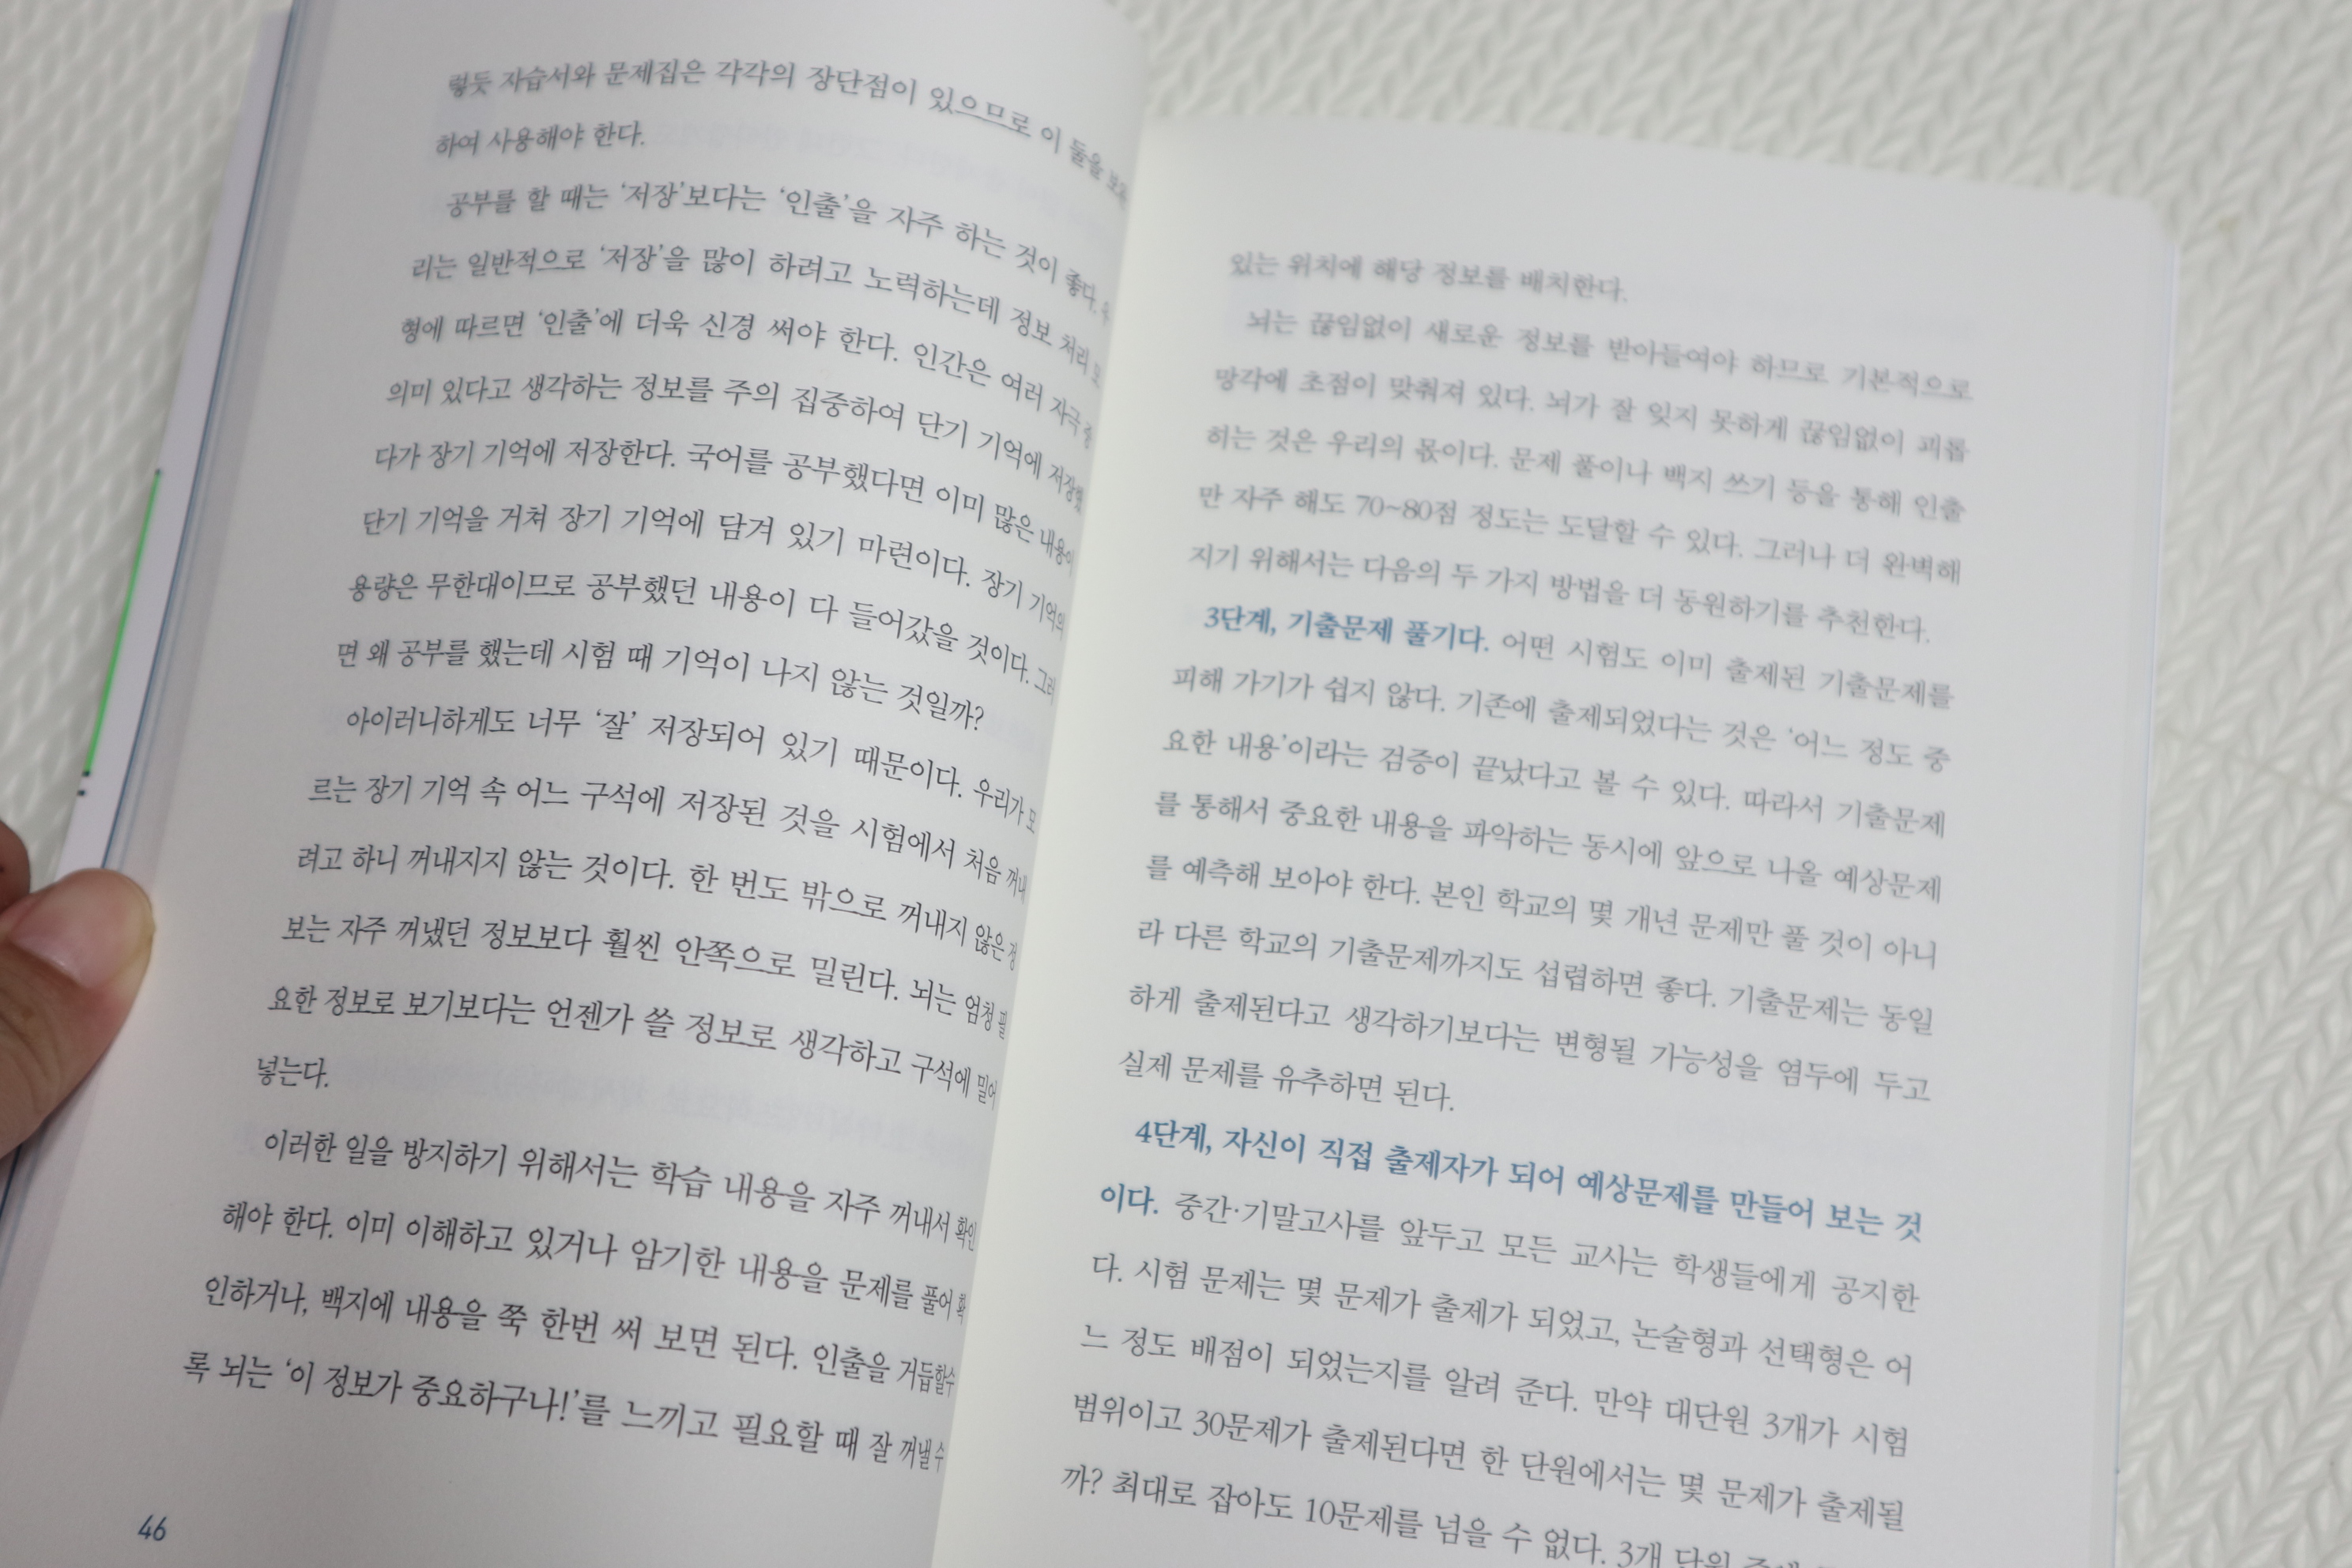 렇듯 자습서와 문제집은 각각의 장단점이 있으므로 이 둘을
하여 사용해야 한다.
공부를 할 때는 ‘저장’보다는 ‘인출’을 자주 하는 것이 좋다.
리는 일반적으로 ‘저장’을 많이 하려고 노력하는데 정보 처리
형에 따르면 ‘인출’에 더욱 신경 써야 한다. 인간은 여러 자극 중
의미 있다고 생각하는 정보를 주의 집중하여 단기 기억에 저장했
다가 장기 기억에 저장한다. 국어를 공부했다면 이미 많은 내용이
단기 기억을 거쳐 장기 기억에 담겨 있기 마련이다. 장기 기억의
용량은 무한대이므로 공부했던 내용이 다 들어갔을 것이다. 그러
면 왜 공부를 했는데 시험 때 기억이 나지 않는 것일까?
아이러니하게도 너무 ‘잘’ 저장되어 있기 때문이다. 우리가 모
르는 장기 기억 속 어느 구석에 저장된 것을 시험에서 처음 꺼내
려고 하니 꺼내지지 않는 것이다. 한 번도 밖으로 꺼내지 않은 정
보는 자주 꺼냈던 정보보다 훨씬 안쪽으로 밀린다. 뇌는 엄청 필
요한 정보로 보기보다는 언젠가 쓸 정보로 생각하고 구석에 밀어
넣는다.
이러한 일을 방지하기 위해서는 학습 내용을 자주 꺼내서 확인
해야 한다. 이미 이해하고 있거나 암기한 내용을 문제를 풀어 확
인하거나, 백지에 내용을 쭉 한번 써 보면 된다. 인출을 거듭할수
록 뇌는 ‘이 정보가 중요하구나!’를 느끼고 필요할 때 잘 꺼낼 수
46
있는 위치에 해당 정보를 배치한다.
뇌는 끊임없이 새로운 정보를 받아들여야 하므로 기본적으로
망각에 초점이 맞춰져 있다. 뇌가 잘 잊지 못하게 끊임없이 괴롭
히는 것은 우리의 몫이다. 문제 풀이나 백지 쓰기 등을 통해 인출
만 자주 해도 70~80점 정도는 도달할 수 있다. 그러나 더 완벽해
지기 위해서는 다음의 두 가지 방법을 더 동원하기를 추천한다.
3단계, 기출문제 풀기다. 어떤 시험도 이미 출제된 기출문제를
피해 가기가 쉽지 않다. 기존에 출제되었다는 것은 ‘어느 정도 중
요한 내용’이라는 검증이 끝났다고 볼 수 있다. 따라서 기출문제
를 통해서 중요한 내용을 파악하는 동시에 앞으로 나올 예상문제
를 예측해 보아야 한다. 본인 학교의 몇 개년 문제만 풀 것이 아니
라 다른 학교의 기출문제까지도 섭렵하면 좋다. 기출문제는 동일
하게 출제된다고 생각하기보다는 변형될 가능성을 염두에 두고
실제 문제를 유추하면 된다.
4단계, 자신이 직접 출제자가 되어 예상문제를 만들어 보는 것
이다. 중간·기말고사를 앞두고 모든 교사는 학생들에게 공지한
다. 시험 문제는 몇 문제가 출제가 되었고, 논술형과 선택형은 어
느 정도 배점이 되었는지를 알려 준다. 만약 대단원 3개가 시험
범위이고 30문제가 출제된다면 한 단원에서는 몇 문제가 출제될
까? 최대로 잡아도 10문제를 넘을 수 없다. 3개 단원